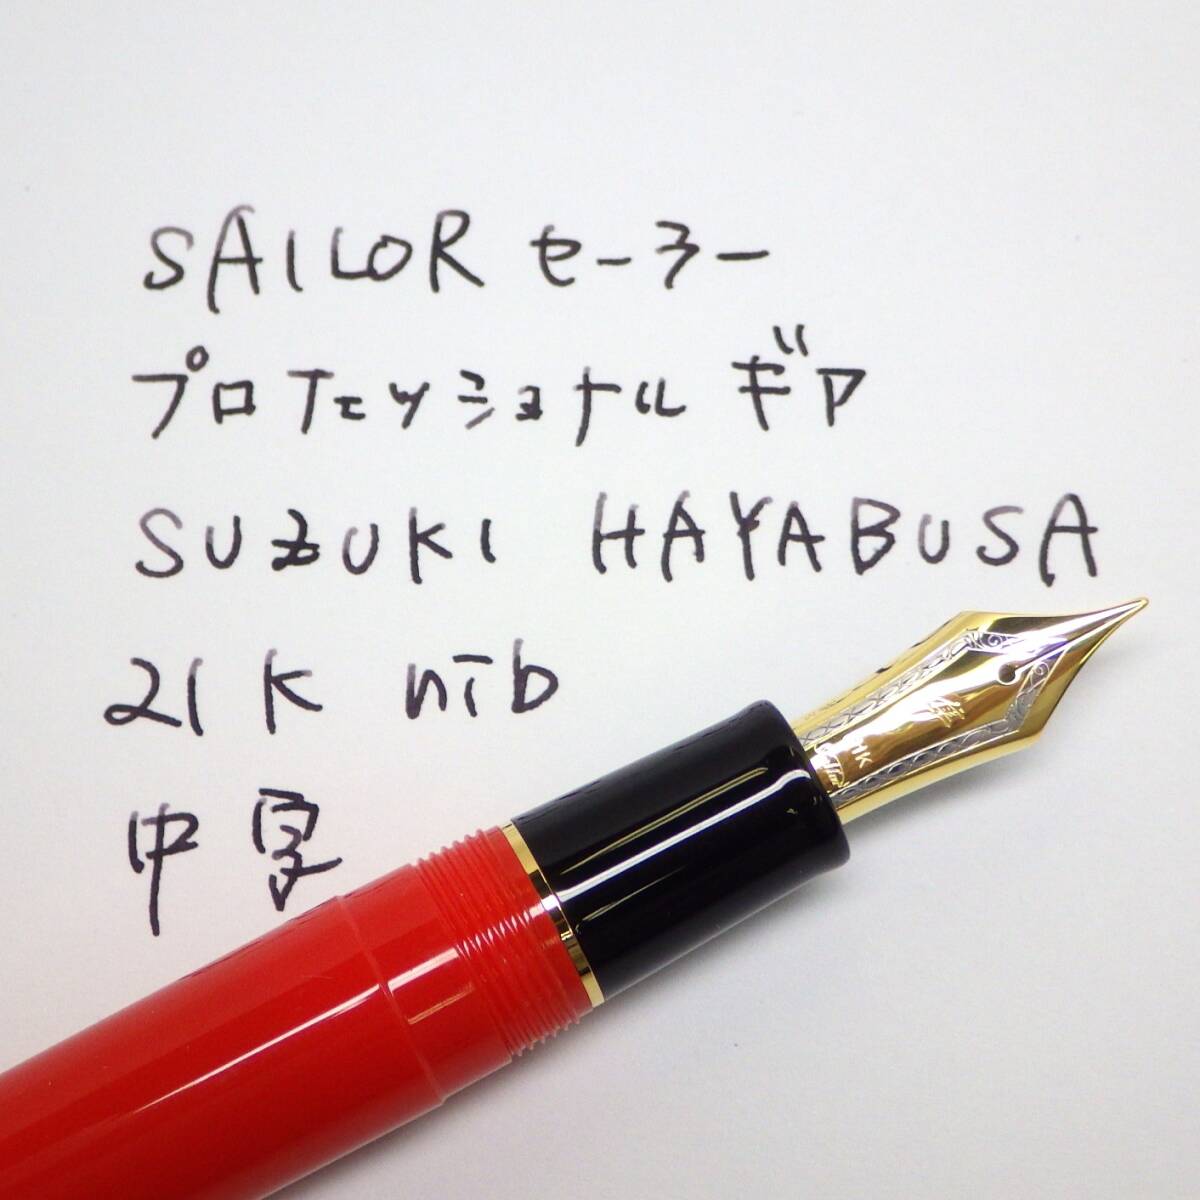 SAILOR セーラー
プロフェッショナル ギア
SUZUKI HAYABUSA
21K nib
中字
隼
21K
Sailor